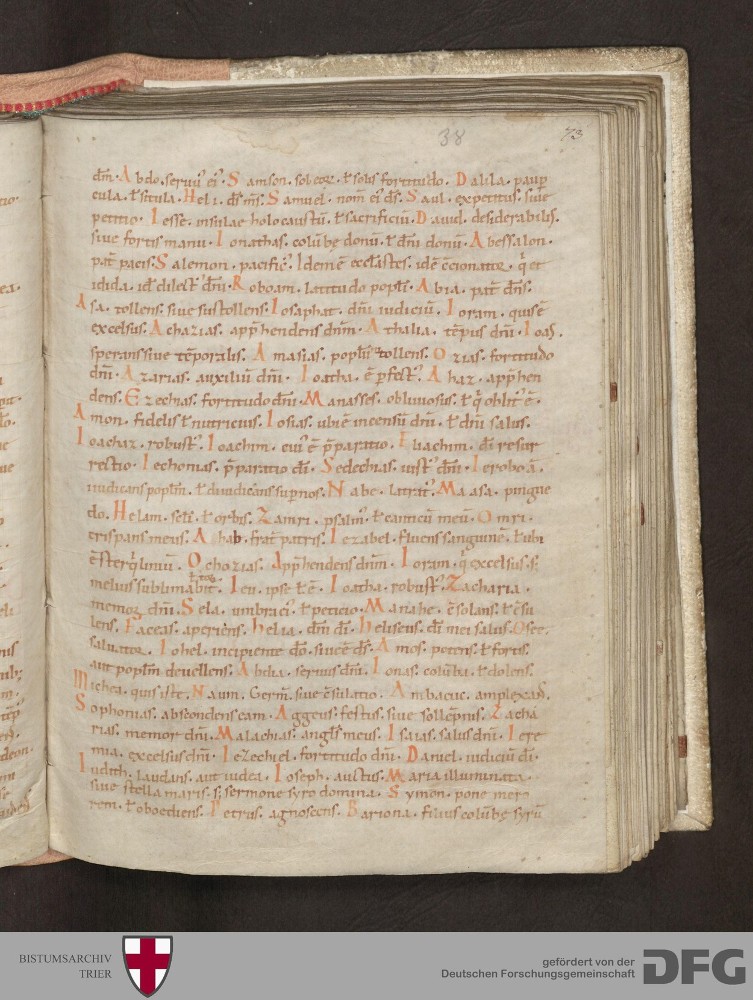 38 73
dm̄. Abdo. seruus ei᾽. Samson. sol eor᷒. ł solis fortitudo. Dalila. paup
cula. ł situla. Heli. ds̄ ms̄. Samuel. nom̄ ei᾽ ds̄. Saul. expetitus. siue
petitio. Iesse. insulae holocaustū. ł sacrificiū. Dauid. desiderabilis.
siue fortis manu. Ionathas. colūbę donū. ł dn̄i donū. Abessalon.
pat᷒ pacis. Salemon. pacific᾽. Idem ē eccl̄astes. idē c̄cionator. q̇ et
idida. id ̄ dilect᾽ dn̄i. Roboam. latitudo popl̄i. Abia. pat᷒ dn̄s.
Asa. tollens. siue sustollens. Iosaphat. dn̄i iudiciū. Ioram. quis ē
excelsus. Achazias. app̄hendens dn̄m. Athalia. tēpus dn̄i. Ioas.
sperans siue tēporalis. Amasias. popl̄m tollens. Ozias. fortitudo
dn̄i. Azarias. auxiliū dn̄i. Ioatha. ē p̱fect᾽. Ahaz. app̄hen
dens. Ezechias. fortitudo dn̄i. Manasses. obliuiosus. ł q̇ oblit᾽ ē.
Amon. fidelis ł nutricius. Iosias. ubi ē incensū dn̄i. ł dn̄i salus.
Ioachaz. robust᾽. Ioachim. cui᾽ ē p̄paratio. Eliachim. dī resur
rectio. Iechonias. p̄paratio dī. Sedechias. iust᾽ dn̄i. Ieroboā.
iudicans popl̄m. ł diiudicans sup̱nos. Nabe. Maasa. pingue
do. Helam. ł orbis. Zamri. psalm᾽. ł canticū meū. Omri.
crispans meus. Ahab. frat᷒ patris. Iezabel. fluens sanguinē. ł ubi
ē sterq̇liniū. Ochozias. App̄hendens dn̄m. Ioram. q̇ excelsus. s;
melius sublimabit᷒. Ieu. ipse ł ē. Ioatha. robust᾽. Zacharia.
memor dn̄i. Sela. umbra ei᾽. ł peticio. Manahē. c̄solans. ł c̄su
lens. Faceas. aperiens. Helia. dn̄i dī. Heliseus. dī mei salus. Osee.
saluator. Iohel. incipiente dō. siue ē ds̄. Amos. potens. ł fortis.
aut popl̄m deuellens. Abdia. seruus dn̄i. Ionas. colūba. ł dolens.
Michea. quis iste. Naum. Germ̄. siue c̄sulatio. Ambacuc. amplexas.
Sophonias. abscondens eam. Aggeus. festus. siue sollēpnis. Zacha
rias. memor dn̄i. Malachias. angl̄s meus. Isaias. salus dn̄i. Iere
mia. excelsus dn̄i. Iezechiel. fortitudo dn̄i. Daniel. iudiciū dī.
Iudith. laudans. aut iudea. Ioseph. auctus. Maria illuminata.
siue stella maris. s; sermone syro domina. Symon. pone mero
rem. ł oboediens. Petrus. agnoscens. Bariona. filius colūbę syrū
BISTUMSARCHIV
TRIER
gefördert von der
Deutschen Forschungsgemeinschaft
DFG